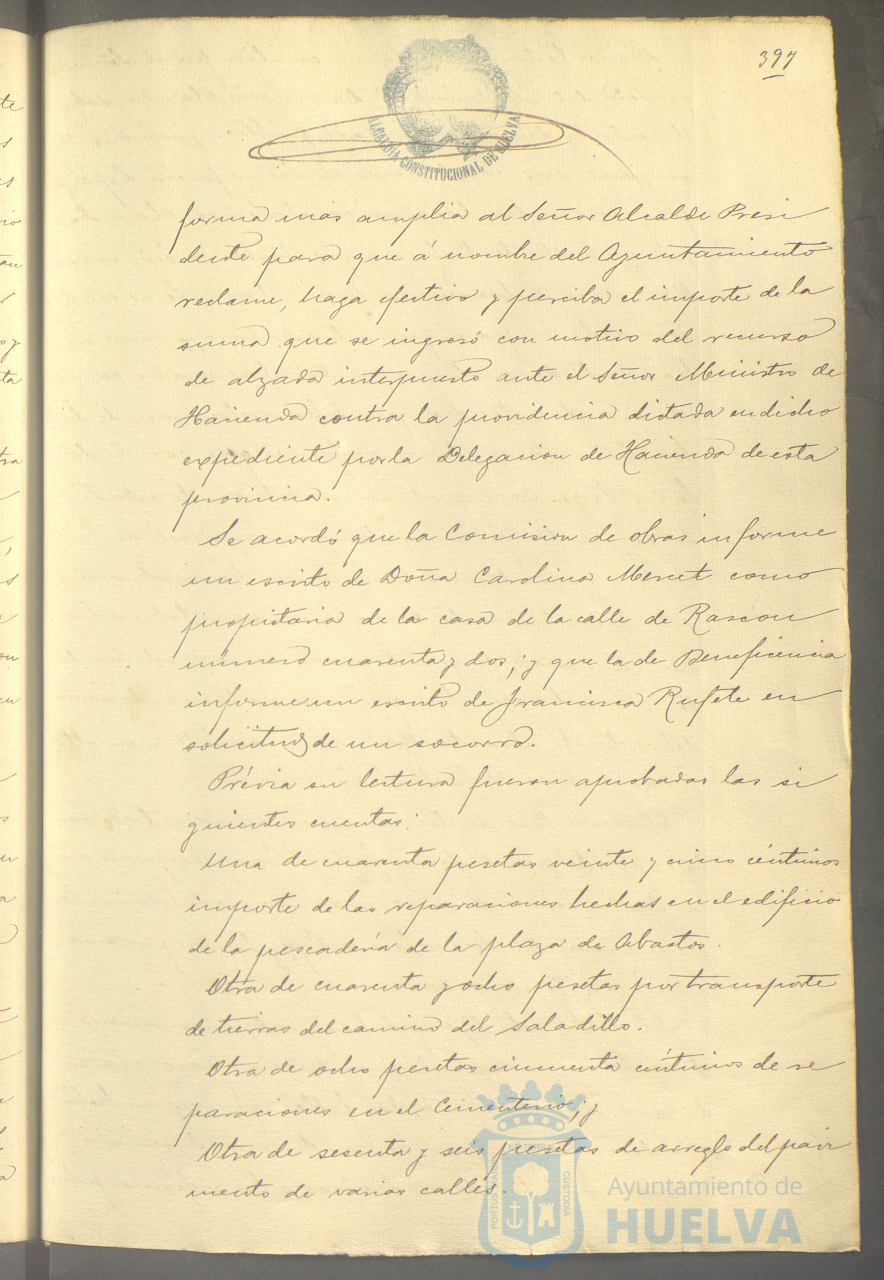 397
ALCALDÍA CONSTITUCIONAL DE HUELVA
forma mas amplia al Señor Alcalde Presi
dente para que á nombre del Ayuntamiento
reclame, haga efectivo y perciba el importe de la
suma que se ingresó con motivo del recurso
de alzada interpuesto ante el Señor Ministro de
Hacienda contra la providencia dictada en dicho
expediente por la Delegacion de Hacienda de esta
provincia.
Se acordó que la Comision de obras informe
un escrito de Doña Carolina como
propietaria de la casa de la calle de Rascon
número cuarenta y dos; y que la de Beneficencia
informe un escrito de Francisca Rufete en
solicitud de un socorro.
Prévia su lectura fueron aprobadas las si
guientes cuentas:
Una de cuarenta pesetas veinte y cinco céntimos
importe de las reparaciones hechas en el edificio
de la pescadería de la plaza de Abastos.
Otra de cuarenta y ocho pesetas por transporte
de tierras del camino del Saladillo.
Otra de ocho pesetas cincuenta céntimos de re
paraciones en el Cementerio; y
Otra de sesenta y seis pesetas de arreglo del pavi
mento de varias calles.
PORTUS MARIS ET TERRAE CUSTODIA
Ayuntamiento de
HUELVA